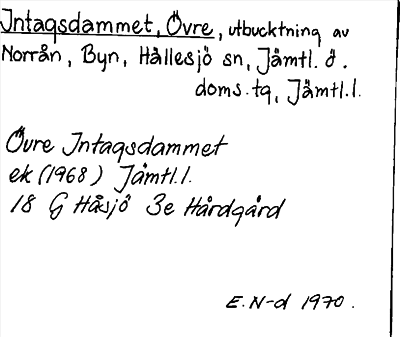 Intagsdammet, Övre, utbucktning av
Norrån, Byn, Hällesjö sn, Jämtl. ö.
doms.tg, Jämtl.l.
Övre Intagsdammet
ek (1968) Jämtl.l.
18 G Håsjö 3e Hårdgård
E. N-d 1970.